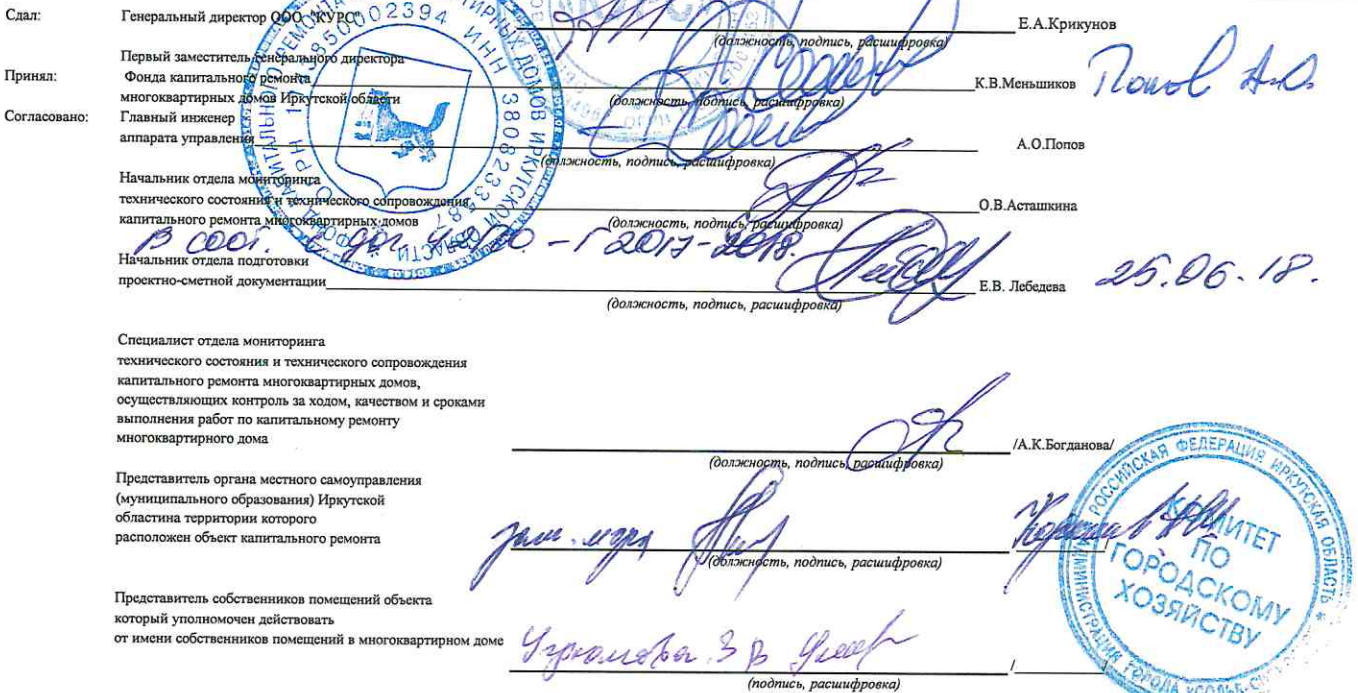 Сдал: Генеральный директор ООО "КУРС" Е.А.Крикунов
(должность, подпись, расшифровка)
Первый заместитель генерального директора
Принял: Фонда капитального ремонта К.В.Меньшиков Попов А.О.
многоквартирных домов Иркутской области (должность, подпись, расшифровка)
Согласовано: Главный инженер
аппарата управления А.О.Попов
(должность, подпись, расшифровка)
Начальник отдела мониторинга
технического состояния и технического сопровождения О.В.Асташкина
капитального ремонта многоквартирных домов (должность, подпись, расшифровка)
В соот. с дог. 2017-2018.
Начальник отдела подготовки
проектно-сметной документации Е.В. Лебедева 25.06.18.
(должность, подпись, расшифровка)
Специалист отдела мониторинга
технического состояния и технического сопровождения
капитального ремонта многоквартирных домов,
осуществляющих контроль за ходом, качеством и сроками
выполнения работ по капитальному ремонту
многоквартирного дома /А.К.Богданова/
(должность, подпись, расшифровка)
Представитель органа местного самоуправления
(муниципального образования) Иркутской
областина территории которого
расположен объект капитального ремонта зам. мэра / /
(должность, подпись, расшифровка)
Представитель собственников помещений объекта
который уполномочен действовать
от имени собственников помещений в многоквартирном доме Угрюмова З В / /
(подпись, расшифровка)
КАПИТАЛЬНОГО РЕМОНТА МНОГОКВАРТИРНЫХ ДОМОВ ИРКУТСКОЙ ОБЛАСТИ
ИНН 3808233587
РОССИЙСКАЯ ФЕДЕРАЦИЯ ИРКУТСКАЯ ОБЛАСТЬ
АДМИНИСТРАЦИИ ГОРОДА
КОМИТЕТ
ПО
ГОРОДСКОМУ
ХОЗЯЙСТВУ